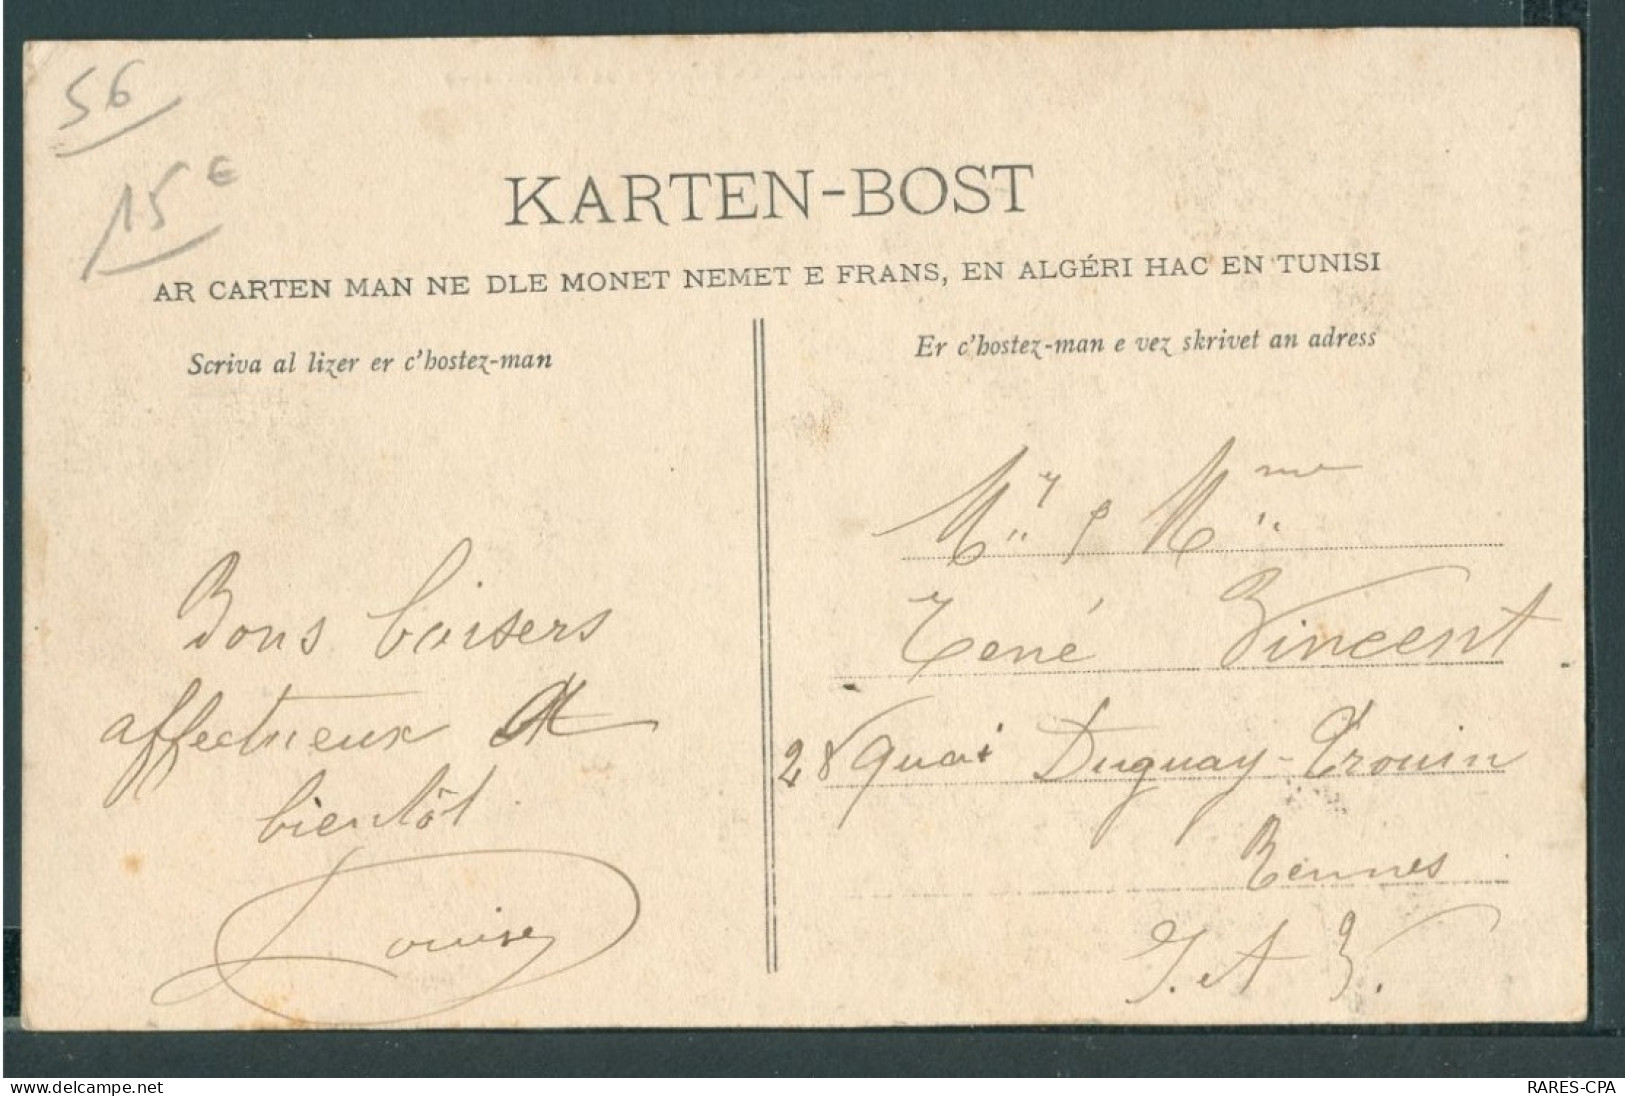 56
15 €
KARTEN-BOST
AR CARTEN MAN NE DLE MONET NEMET E FRANS, EN ALGÉRI HAC EN TUNISI
Scriva al lizer er c'hostez-man
Er c'hostez-man e vez skrivet an adress
Bons baisers
affectueux A
bientôt
Louise
Mr & Mme
René Vincent
28 Quai Duguay-Trouin
Rennes
I. et V.
delcampe.net
RARES-CPA